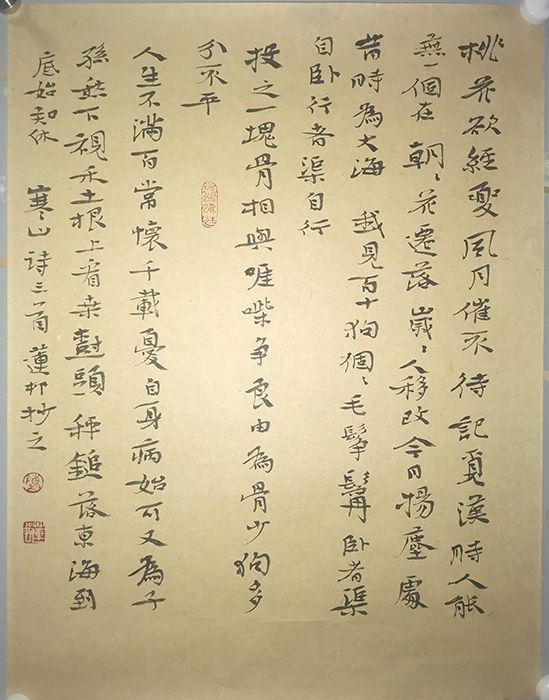 桃花欲經夏風月催不待訪覓漢時人能
無一個在 朝〻花遷落歲〻人移改今日揚塵處
昔時為大海 我見百十狗個〻毛鬇鬡卧者渠
自卧行者渠自行
投之一塊骨相與啀喍爭良由為骨少狗多
分不平
人生不滿百常懷千載憂自身病始可又為子
孫愁下視禾土根上看桑樹頭秤鎚落東海到
底始知休 寒山诗三首蓮邨抄之